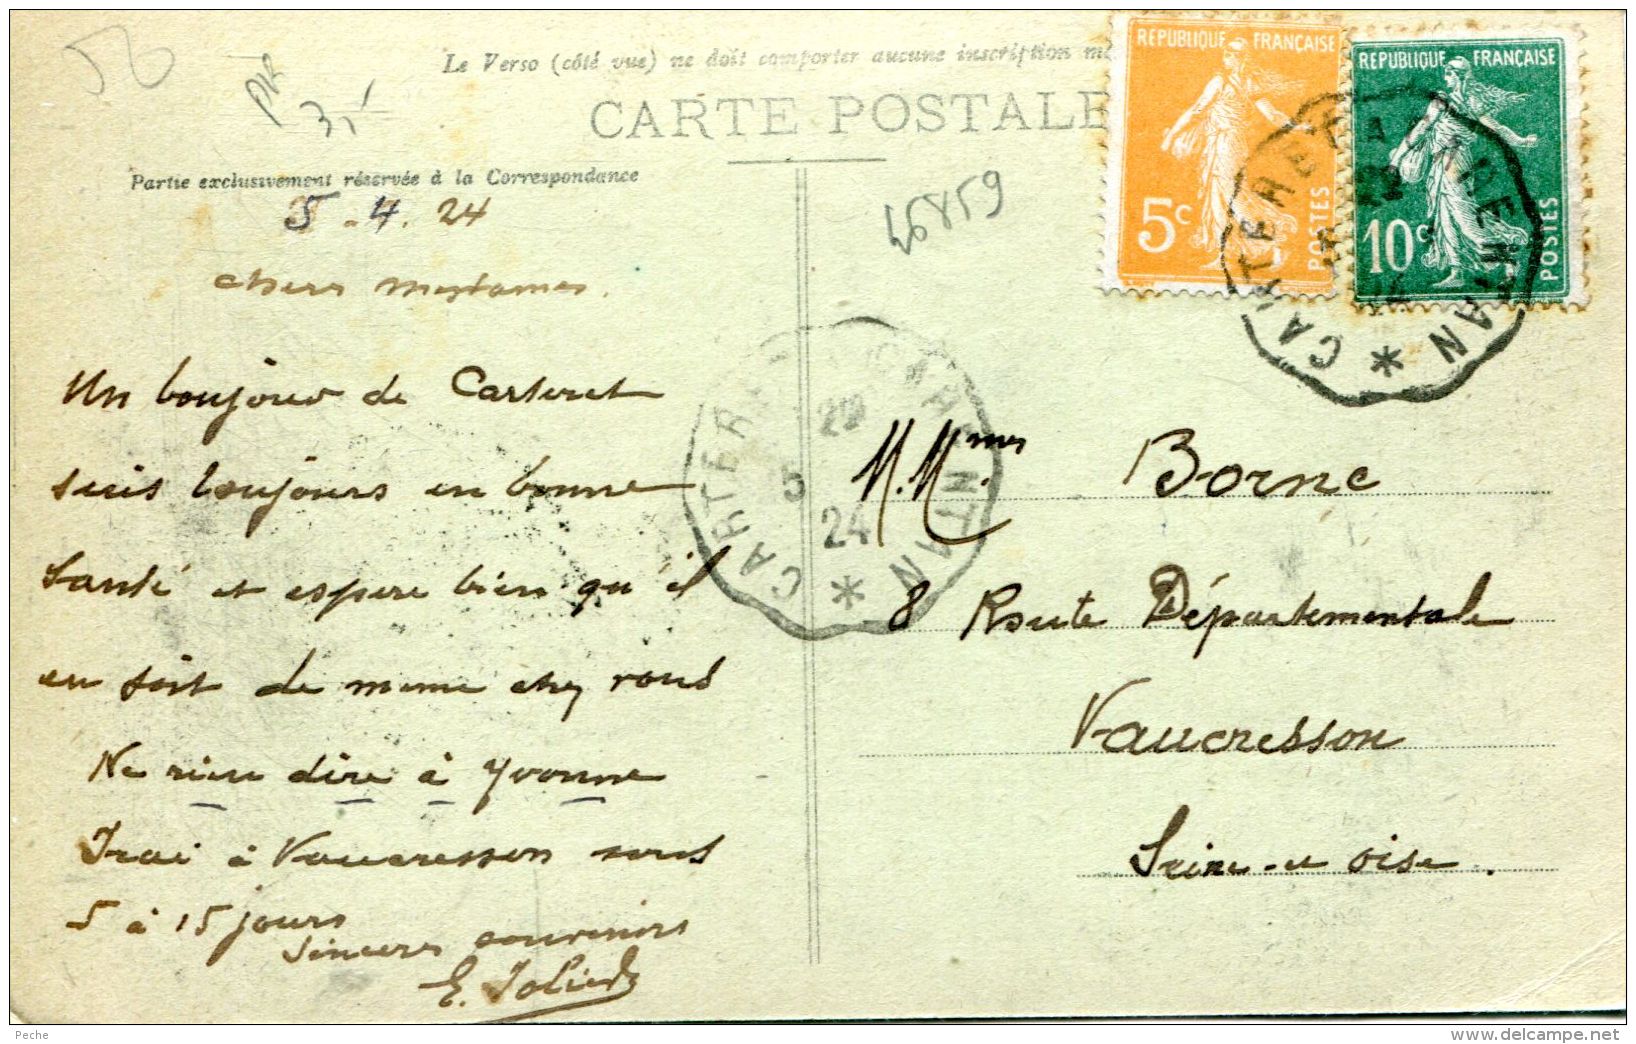 56
35
Le Verso (côté vue) ne doit comporter aucune inscription
CARTE POSTALE
Partie exclusivement réservée à la Correspondance
5.4.24
Chers Mesdames.
Un bonjour de Carteret
suis toujours en bonne
Santé et espere bien qu'il
en soit de meme chez vous
Ne rien dire à Yvonne
Irai à Vaucresson sous
5 à 15 jours
Sinceres souvenirs
E.
REPUBLIQUE FRANÇAISE
5c
POSTES
REPUBLIQUE FRANÇAISE
10c
POSTES
CARTERET A CARENTAN *
22
CARTERET A CARENTAN *
5
24
M.Mmes Borne
8 Route Départementale
Vaucresson
Seine-et oise.
Peche
www.delcampe.net